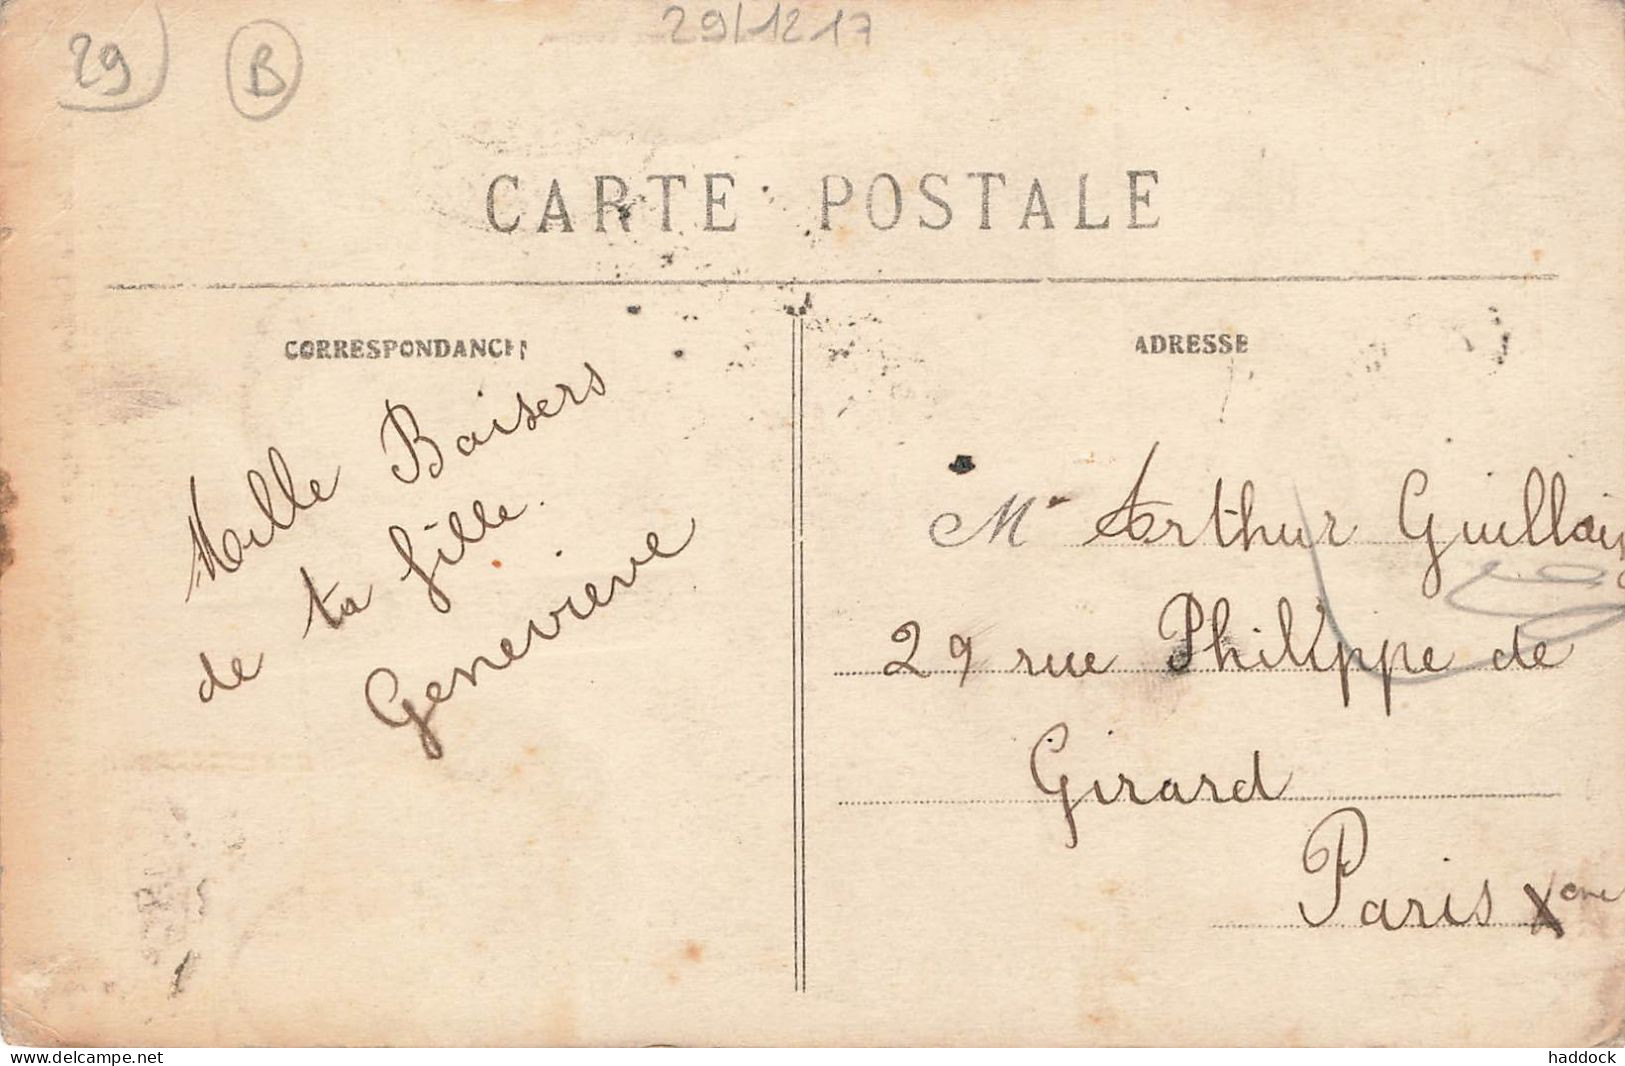 29
B
29/12 17
CARTE POSTALE
CORRESPONDANCE
ADRESSE
Mille Baisers
de ta fille.
Genevieve
Mr Arthur Guillain
29 rue Philippe de
Girard
Paris Xeme
www.delcampe.net
haddock